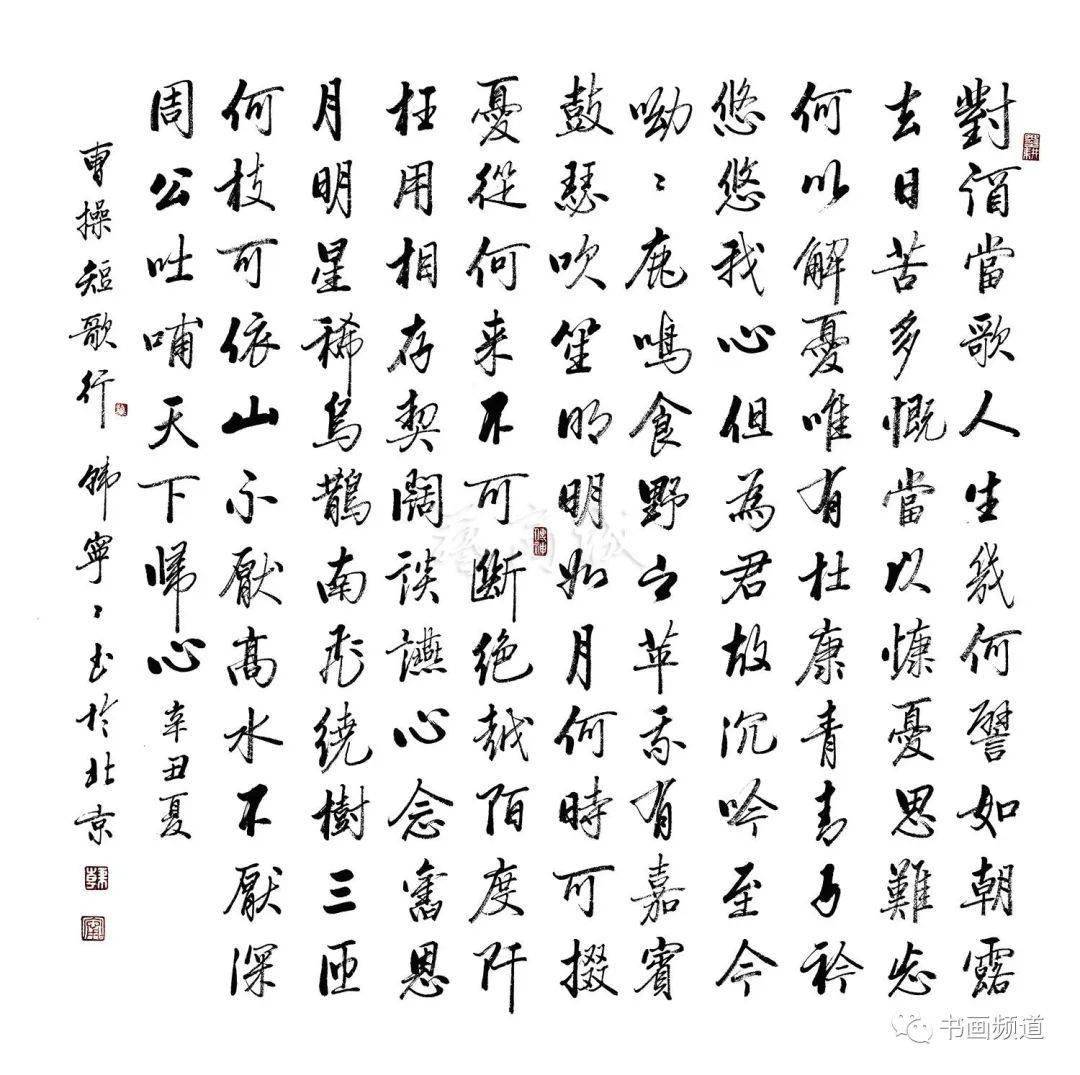 對酒當歌人生幾何譬如朝露
去日苦多慨當以慷憂思難忘
何以解憂唯有杜康青青子衿
悠悠我心但為君故沉吟至今
呦〻鹿鳴食野之苹我有嘉賓
鼓瑟吹笙明明如月何時可掇
憂從何来不可斷絕越陌度阡
枉用相存契闊談讌心念舊恩
月明星稀烏鵲南飛繞樹三匝
何枝可依山不厭高水不厭深
周公吐哺天下歸心辛丑夏
曹操短歌行 韓寧〻書於北京
書画频道